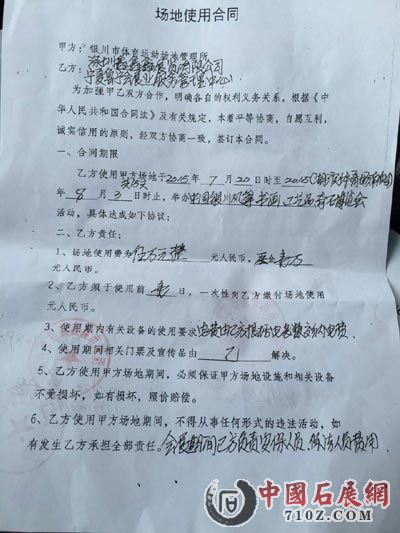 场地使用合同
甲方：银川市体育运动场地管理所
乙方：
为加强甲乙双方合作，明确各自的权利义务关系，根据《中
华人民共和国合同法》及有关规定，本着平等协商，自愿互利，
诚实信用的原则，经双方协商一致，签订本合同。
一、合同期限
乙方使用甲方场地于2015年7月20日时至2015
年8月3日时止，举办中国银川 书画、工艺品 博览会
活动，具体达成如下协议：
二、乙方责任：
1、场地使用费为伍万元整 元人民币，
元人民币。
2、乙方须于使用前 日，一次性向乙方缴付场地使用
元人民币。
3、使用期内有关设备的使用要求
4、使用期间相关门票及宣传品由 乙 解决。
5、乙方使用甲方场地期间，必须保证甲方场地设施和相关设备
不受损坏，如有损坏，照价赔偿。
6、乙方使用甲方场地期间，不得从事任何形式的违法活动，如
有发生乙方承担全部责任。会展期间乙方负责安保人员、保洁人员费用
中國石展網
710Z.COM